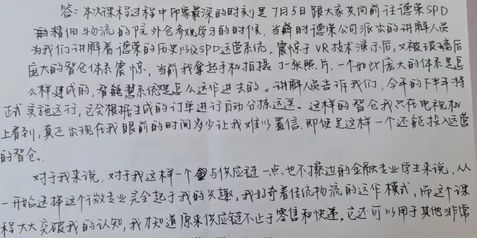 答：本次课程过程中印象最深的时刻是7月5日跟大家共同前往德荣SPD
的精细物流的院外仓参观学习的时刻，当时德荣公司派出的讲解人员
为我们讲解着德荣的历史以及SPD运营系统，震惊于VR技术演示后，又被玻璃后
庞大的智仓体系震惊，当前我拿起手机拍摄了一张照片，一个如此庞大的体系是怎
么样建成的，智能慧系统是怎么运作进去的。讲解人员告诉我们，今年的下半年将
正式实施运行，它会根据生成的订单进行自动分拣运送。这样的智仓我只在电视机
上看到，真正出现在我眼前的时间多少让我难以置信，即使是这样一个还能投入运营
的智仓。
对于我来说，对于我这样一个与供应链一点也不擦边的金融专业学生来说，从
一开始选择这个行教专业完全起于我的兴趣，我好奇着传统物流的运作模式，而这个课
程大大突破我的认知，我才知道原来供应链不止于零售和快递，它还可以用于其他非常